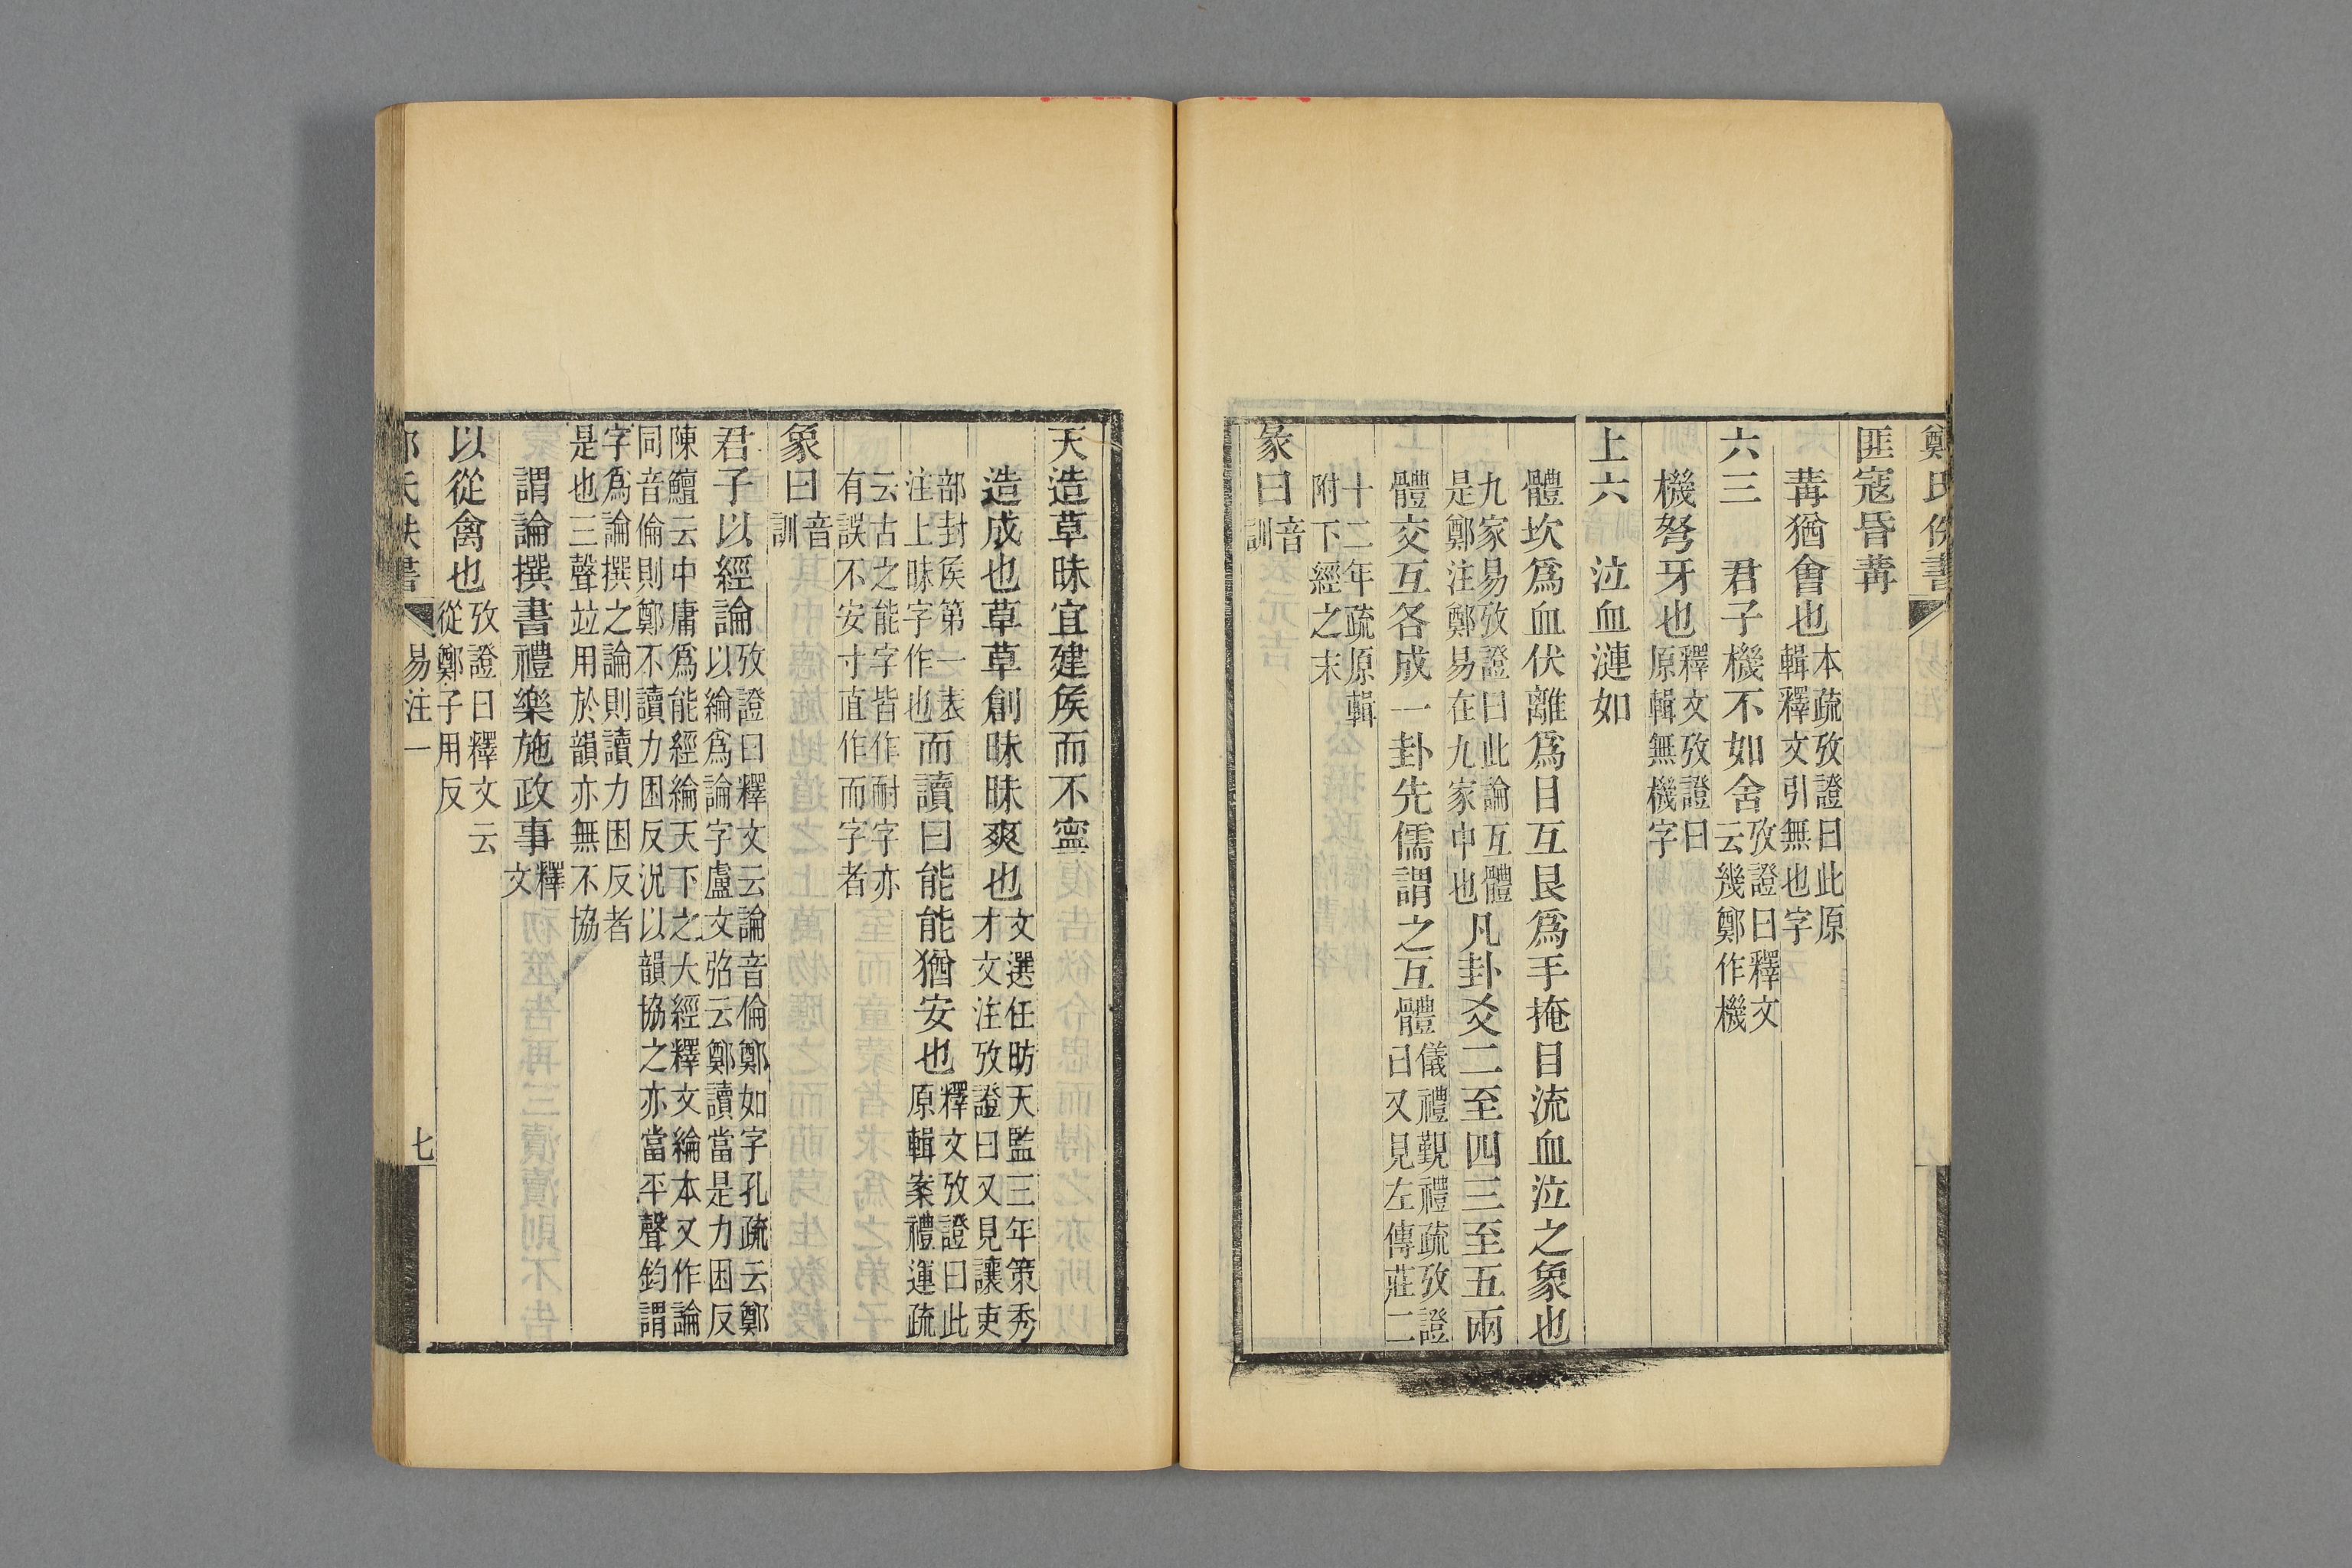 鄭氏佚書
匪寇昏冓
冓猶會也本疏攷證曰此原
輯釋文引無也字
六三 君子機不如舍攷證曰釋文
云幾鄭作機
機弩牙也釋文攷證曰
原輯無機字
上六 泣血漣如
體坎爲血伏離爲目互艮爲手掩目流血泣之象也
九家易攷證曰此論互體
是鄭注鄭易在九家中也凡卦爻二至四三至五兩
體交互各成一卦先儒謂之互體儀禮覲禮疏攷證
曰又見左傳莊二
十二年疏原輯
附下經之末
彖曰音
訓
天造草昧宜建矦而不寧
造成也草草創昧昧爽也文選任昉天監三年策秀
才文注攷證曰又見讓吏
部封矦第一表
注上昧字作也而讀曰能能猶安也釋文攷證曰此
原輯案禮運疏
云古之能字皆作耐字亦
有誤不安寸直作而字者
象曰音
訓
君子以經論攷證曰釋文云論音倫鄭如字孔疏云鄭
以綸爲論字盧文弨云鄭讀當是力困反
陳鱣云中庸爲能經綸天下之大經釋文綸本又作論
同音倫則鄭不讀力困反況以韻協之亦當平聲鈞謂
字爲論撰之論則讀力困反者
是也三聲竝用於韻亦無不協
謂論撰書禮樂施政事釋
文
以從禽也攷證曰釋文云
從鄭子用反
鄭氏佚書 易注一 七